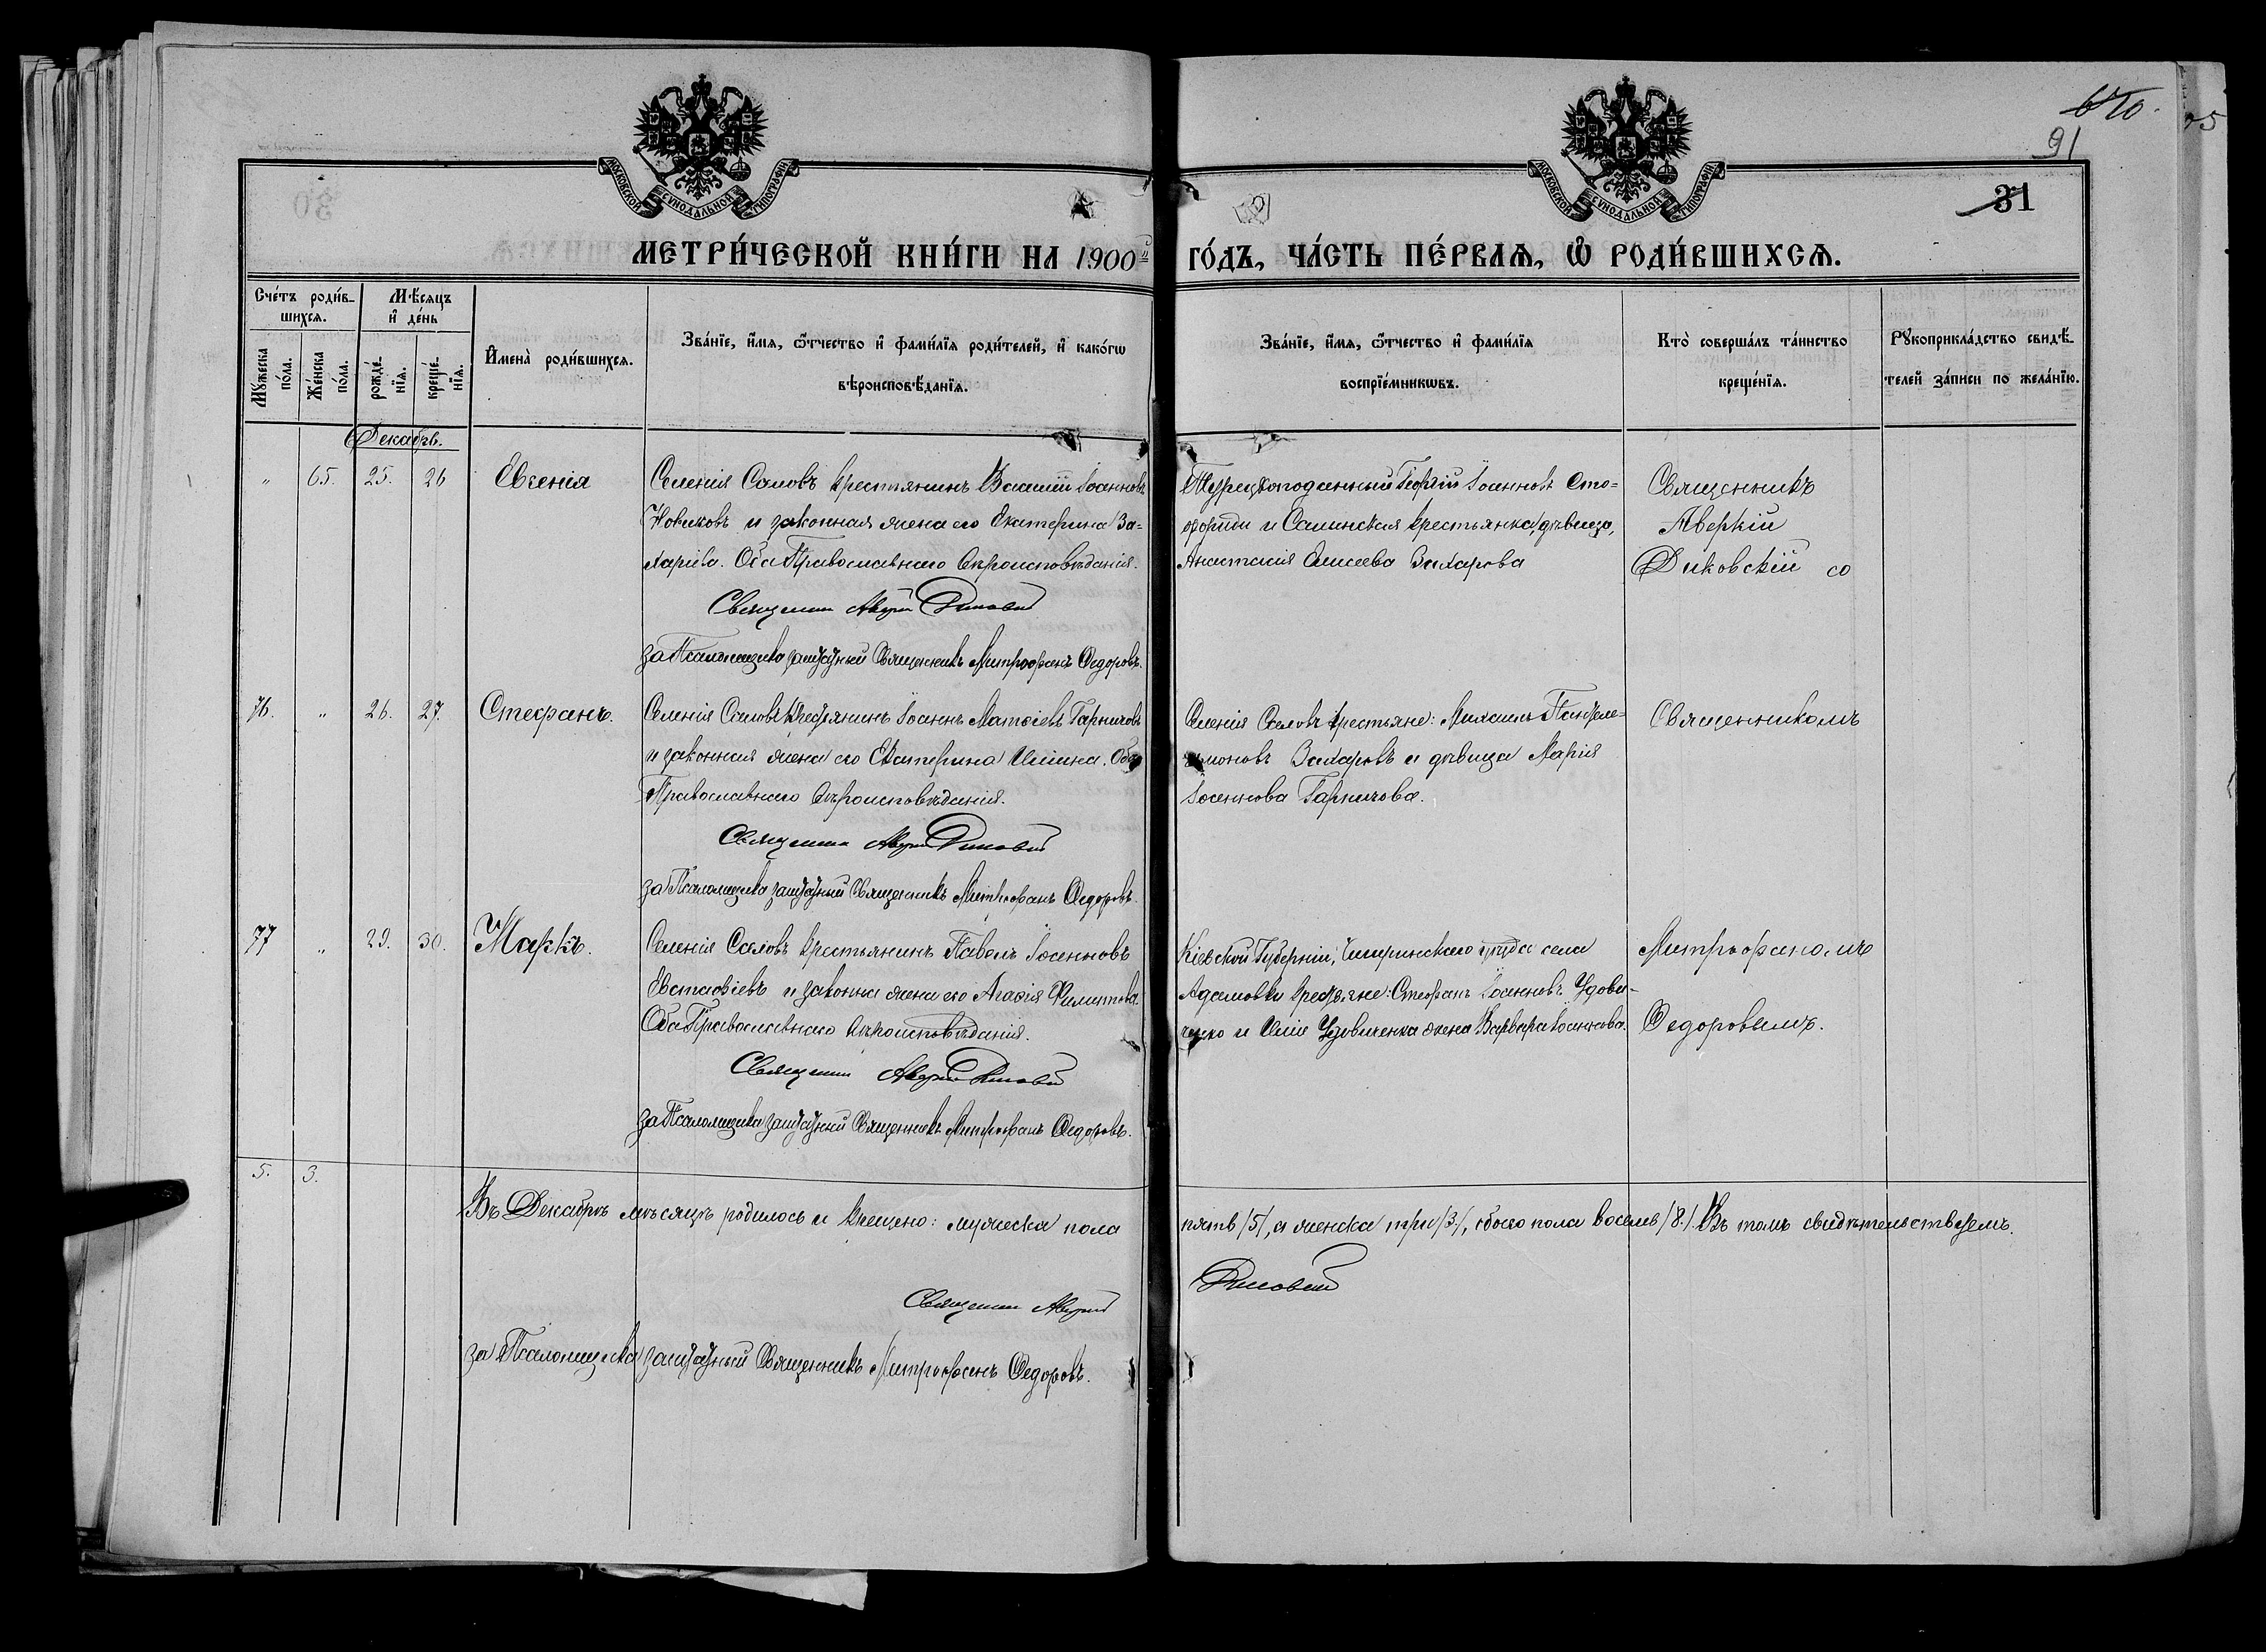 640.
91
75
31
МОСКОВСКОЙ СѴНОДАЛЬНОЙ ТИПОГРАФІИ
МОСКОВСКОЙ СѴНОДАЛЬНОЙ ТИПОГРАФІИ
МЕТРИ́ЧЕСКОЙ КНИ́ГИ НА 1900й ГО́ДЪ, ЧА́СТЬ ПЕ́РВАѦ, Ѡ҆ РОДИ́ВШИХСѦ.
Сче́тъ роди́в-
шихсѧ.
Мꙋ́жеска
по́ла.
Же́нска
по́ла.
Мѣ́сѧцъ
и҆ де́нь
рожде́-
нїѧ.
креще́-
нїѧ.
И҆мена̀ роди́вшихсѧ.
Зва́нїе, и҆́мѧ, ѻ҆́тчество и҆ фами́лїѧ роди́телей, и҆ како́гѡ
вѣроисповѣ́данїѧ.
Зва́нїе, и҆́мѧ, ѻ҆́тчество и҆ фами́лїѧ
воспрїе́мникѡвъ.
Кто̀ соверша́лъ та́инство
креще́нїѧ.
Рꙋкоприкла́дство свидѣ́-
телей за́писи по жела́нїю.
Декабрь.
„ 65. 25. 26 Евгенія
Селенія Саловъ крестьянинъ Василій Іоанновъ
Новиковъ и законная жена его Екатерина За-
харіева. Оба Православнаго вѣроисповѣданія.
Священник Аверкій Диковскій
за Псаломщика заштатный Священникъ Митрофанъ Ѳедоровъ.
Турецкоподанный Георгій Іоанновъ Сто-
фориди и Салинская крестьянка, дѣвица,
Анастасія Елисеева Захарова
Священникъ
Аверкій
Диковскій со
76. „ 26. 27. Стефанъ.
Селенія Саловъ крестьянинъ Іоаннъ Матѳіевъ Гарничовъ
и законная жена его Екатерина Ильина. Оба
Православнаго вѣроисповѣданія.
Священник Аверкій Диковскій
за Псаломщика заштатный Священникъ Митрофанъ Ѳедоровъ.
Селенія Саловъ крестьяне: Михаилъ Пантеле-
имоновъ Захаровъ и дѣвица Марія
Іоаннова Гарничова.
Священникомъ
77 „ 29. 30. Маркъ.
Селенія Саловъ крестьянинъ Павелъ Іоанновъ
Евстаѳіевъ и законна жена его Агаѳія Филиппова
Оба Православнаго вѣроисповѣданія.
Священник Аверкій Диковскій
за Псаломщика заштатный Священникъ Митрофанъ Ѳедоровъ.
Кіевской Губерніи, Чигиринскаго уѣзда села
Адамовки крестьяне: Стефанъ Іоанновъ Удови-
ченко и Удовиченка жена Варвара Іоаннова.
Митрофаномъ
Ѳедоровымъ.
5. 3.
Въ Декабрѣ мѣсяцѣ родилось и крещено: мужеска пола пять /5/, а женска три /3/, обоего пола восемь /8./ Въ томъ свидѣтельствуемъ.
Священник Аверкій Диковскій
за Псаломщика заштатный Священникъ Митрофанъ Ѳедоровъ.